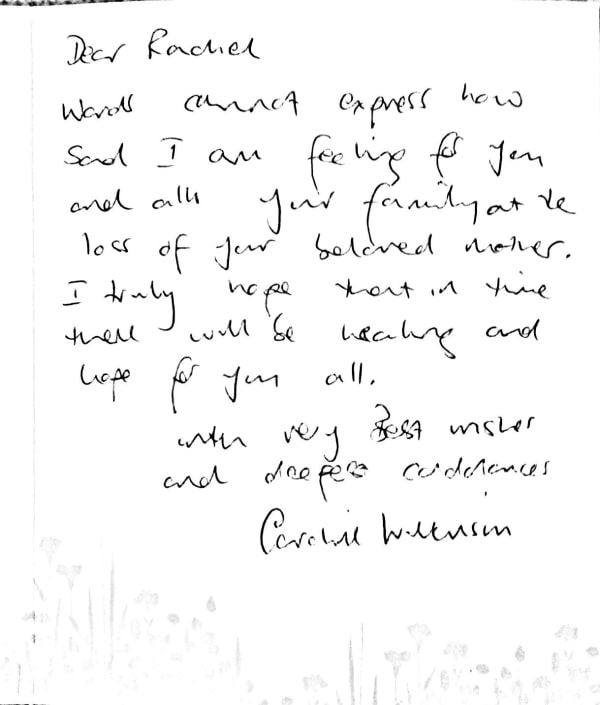 Dear Rachel
Words cannot express how
Sad I am feeling for you
and all your family at the
loss of your beloved mother.
I truly hope that in time
there will be healing and
hope for you all.
with very Best wishes
and deepest condolences
Caroline Wilkinson